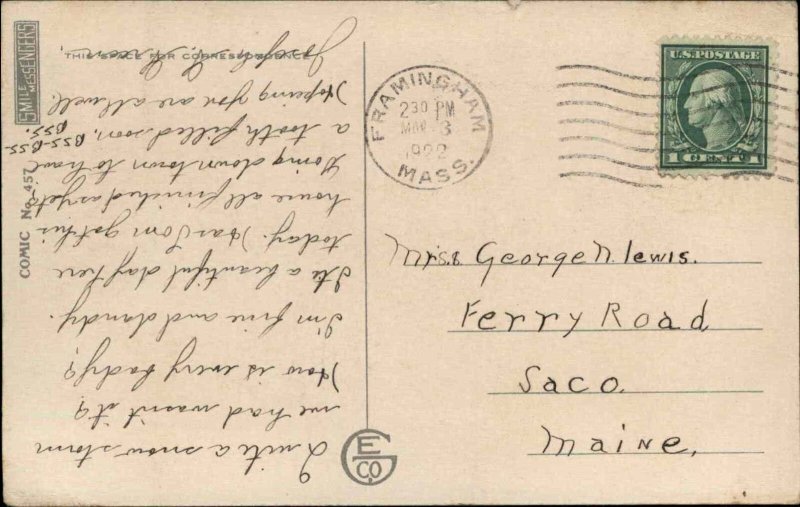 SMILE MESSENGERS
COMIC No. 457
THIS SPACE FOR CORRESPONDENCE
Quite a snow storm
we had wasn't it?
How is every body?
I'm fine and dandy.
It's a beautiful day here
today. Has Tom got his
house all finished as yet
Going down town to have
a tooth filled soon, BSS-BSS.
BSS.
Hoping you are all well.
Joseph
E G CO.
FRAMINGHAM
2 30 PM
MAR 3
1922
MASS.
U.S. POSTAGE
1 CENT 1
Mrs. George N. Lewis.
Ferry Road
Saco.
Maine.